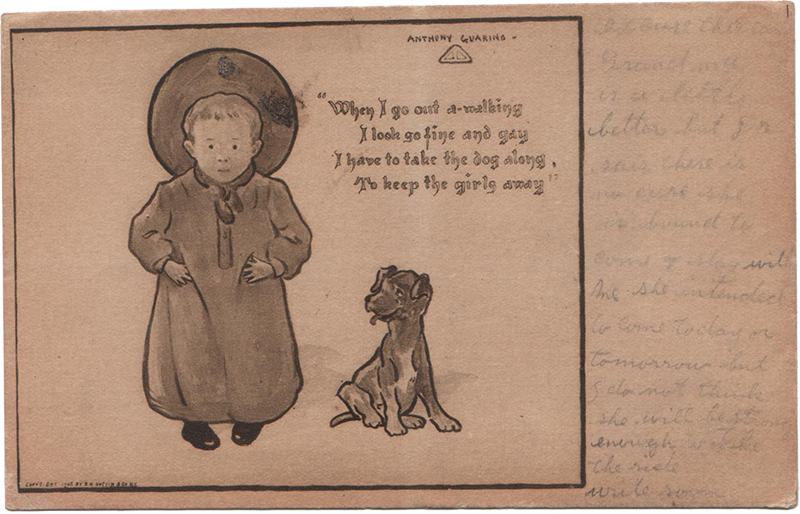 ANTHONY GUARINO -
"When I go out a-walking
I look so fine and gay
I have to take the dog along,
To keep the girls away"
COPYRIGHT
Grandma
is a little
better but
says there is
no cure she
is bound to
come & stay with
me she intended
to come today or
tomorrow but
I do not think
she will be strong
enough
the ride
write soon